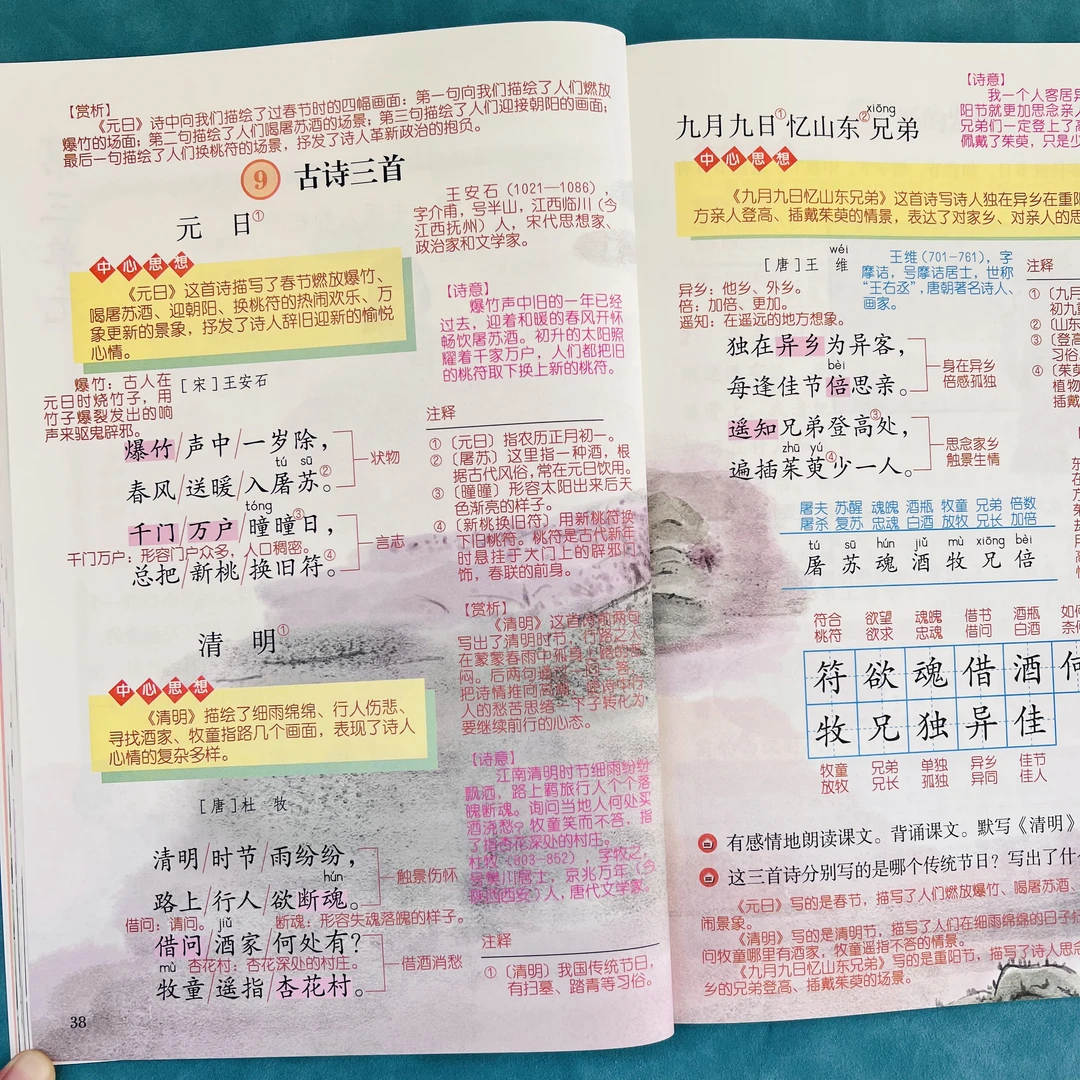 【赏析】
《元日》诗中向我们描绘了过春节时的四幅画面：第一句向我们描绘了人们燃放
爆竹的场面；第二句描绘了人们喝屠苏酒的场景；第三句描绘了人们迎接朝阳的画面；
最后一句描绘了人们换桃符的场景，抒发了诗人革新政治的抱负。
9 古诗三首
元 日①
王安石（1021—1086），
字介甫，号半山，江西临川（今
江西抚州）人，宋代思想家、
政治家和文学家。
中心思想
《元日》这首诗描写了春节燃放爆竹、
喝屠苏酒、迎朝阳、换桃符的热闹欢乐、万
象更新的景象，抒发了诗人辞旧迎新的愉悦
心情。
【诗意】
爆竹声中旧的一年已经
过去，迎着和暖的春风开怀
畅饮屠苏酒。初升的太阳照
耀着千家万户，人们都把旧
的桃符取下换上新的桃符。
爆竹：古人在
元日时烧竹子，用
竹子爆裂发出的响
声来驱鬼辟邪。
［宋］王安石
爆竹/声中/一岁除，
tú sū
春风/送暖/入屠苏②。
状物
tóng
千门/万户/曈曈③日，
千门万户：形容门户众多，人口稠密。
总把/新桃/换旧符④。
言志
注释
①〔元日〕指农历正月初一。
②〔屠苏〕这里指一种酒，根
据古代风俗，常在元日饮用。
③〔曈曈〕形容太阳出来后天
色渐亮的样子。
④〔新桃换旧符〕用新桃符换
下旧桃符。桃符是古代新年
时悬挂于大门上的辟邪门
饰，春联的前身。
清 明①
【赏析】
《清明》这首诗前两句
写出了清明时节，行路之人
在蒙蒙春雨中孤身
闷。后两句
把诗情推向高潮，
人的愁苦思绪一下子转化为
要继续前行的心态。
中心思想
《清明》描绘了细雨绵绵、行人伤悲、
寻找酒家、牧童指路几个画面，表现了诗人
心情的复杂多样。
［唐］杜 牧
【诗意】
江南清明时节细雨纷纷
飘洒，路上羁旅行人个个落
魄断魂。询问当地人何处买
酒浇愁？牧童笑而不答，指
了指杏花深处的村庄。
杜牧（803—852），字牧之，
号樊川居士，京兆万年（今
陕西西安）人，唐代文学家。
清明/时节/雨纷纷，
hún
路上/行人/欲断魂。
触景伤怀
借问：请问。 断魂：形容失魂落魄的样子。
jiǔ
借问/酒家/何处有？
mù 杏花村：杏花深处的村庄。
牧童/遥指/杏花村。
借酒消愁
注释
①〔清明〕我国传统节日，
有扫墓、踏青等习俗。
38
xiōng
九月九日①忆山东②兄弟
【诗意】
我一个人客居异
阳节就更加思念亲人
兄弟们一定登上了高
佩戴了茱萸，只是少
中心思想
《九月九日忆山东兄弟》这首诗写诗人独在异乡在重阳
方亲人登高、插戴茱萸的情景，表达了对家乡、对亲人的思
wéi
［唐］王 维
王维（701—761），字
摩诘，号摩诘居士，世称
“王右丞”，唐朝著名诗人、
画家。
异乡：他乡、外乡。
倍：加倍、更加。
遥知：在遥远的地方想象。
独在异乡为异客，
bèi
每逢佳节倍思亲。
身在异乡
倍感孤独
遥知兄弟登高③处，
zhū yú
遍插茱萸④少一人。
思念家乡
触景生情
注释
①〔九月
初九重
②〔山东
③〔登高
习俗
④〔茱萸
植物
插戴
屠夫 苏醒 魂魄 酒瓶 牧童 兄弟 倍数
屠杀 复苏 忠魂 白酒 放牧 兄长 加倍
tú sū hún jiǔ mù xiōng bèi
屠 苏 魂 酒 牧 兄 倍
符合 欲望 魂魄 借书 酒瓶 如何
桃符 欲求 忠魂 借问 白酒 奈何
符 欲 魂 借 酒 何
牧 兄 独 异 佳
牧童 兄弟 单独 异乡 佳节
放牧 兄长 孤独 异同 佳人
有感情地朗读课文。背诵课文。默写《清明》
这三首诗分别写的是哪个传统节日？写出了什
《元日》写的是春节，描写了人们燃放爆竹、喝屠苏酒、
闹景象。
《清明》写的是清明节，描写了人们在细雨绵绵的日子
问牧童哪里有酒家，牧童遥指不答的情景。
《九月九日忆山东兄弟》写的是重阳节，描写了诗人思念
乡的兄弟登高、插戴茱萸的场景。